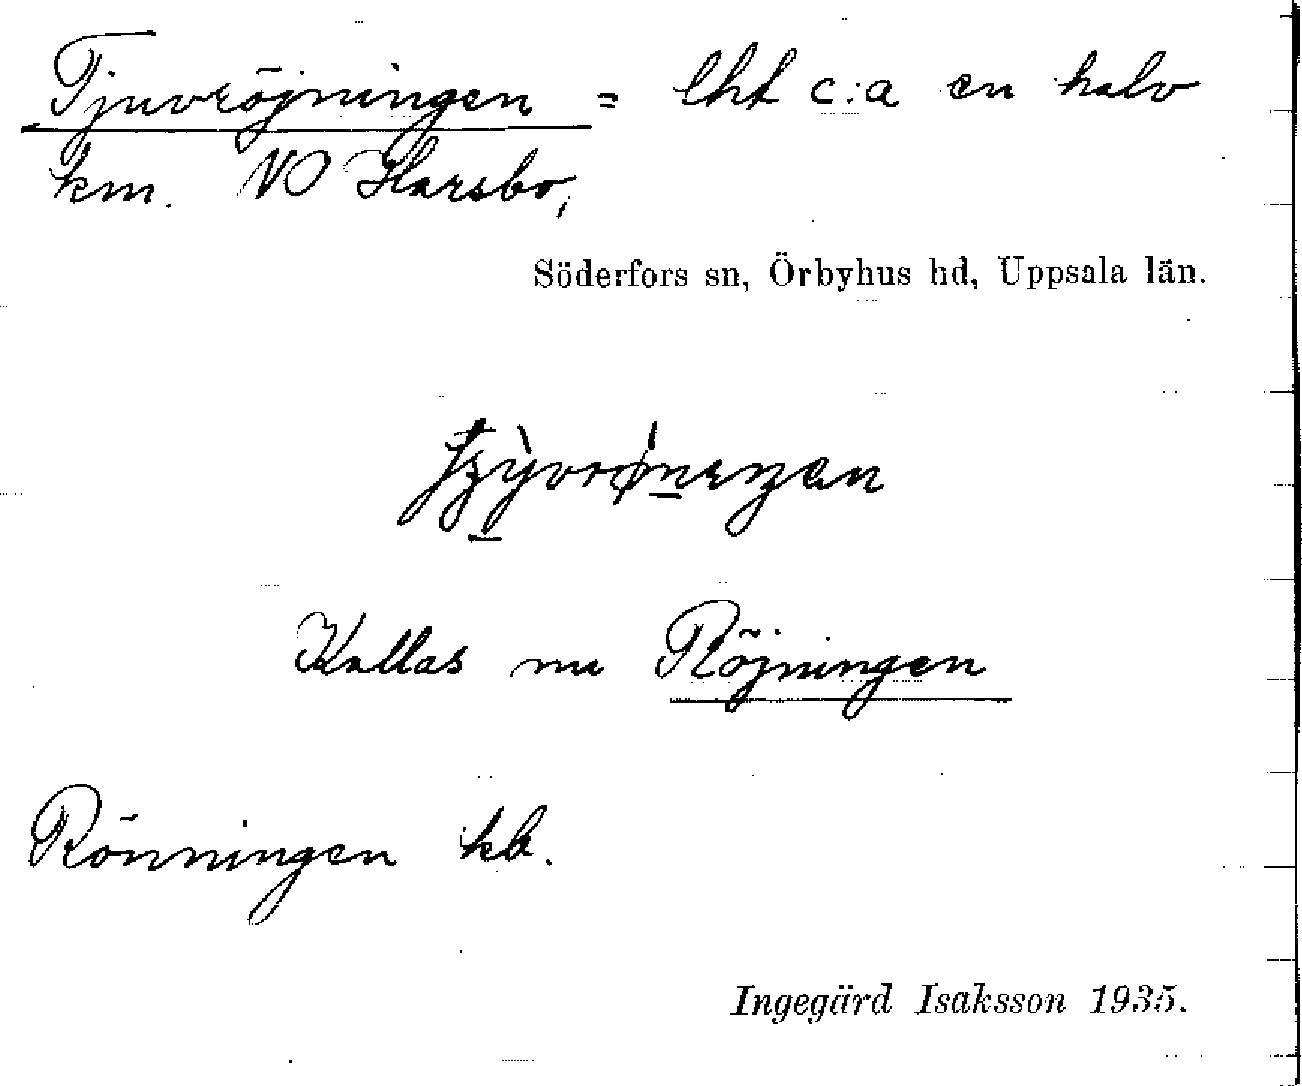 Tjuvröjningen = lht c:a en halv
km. NO Harsbo,
Söderfors sn, Örbyhus hd, Uppsala län.
Kallas nu Röjningen
Rönningen kb.
Ingegärd Isaksson 1935.